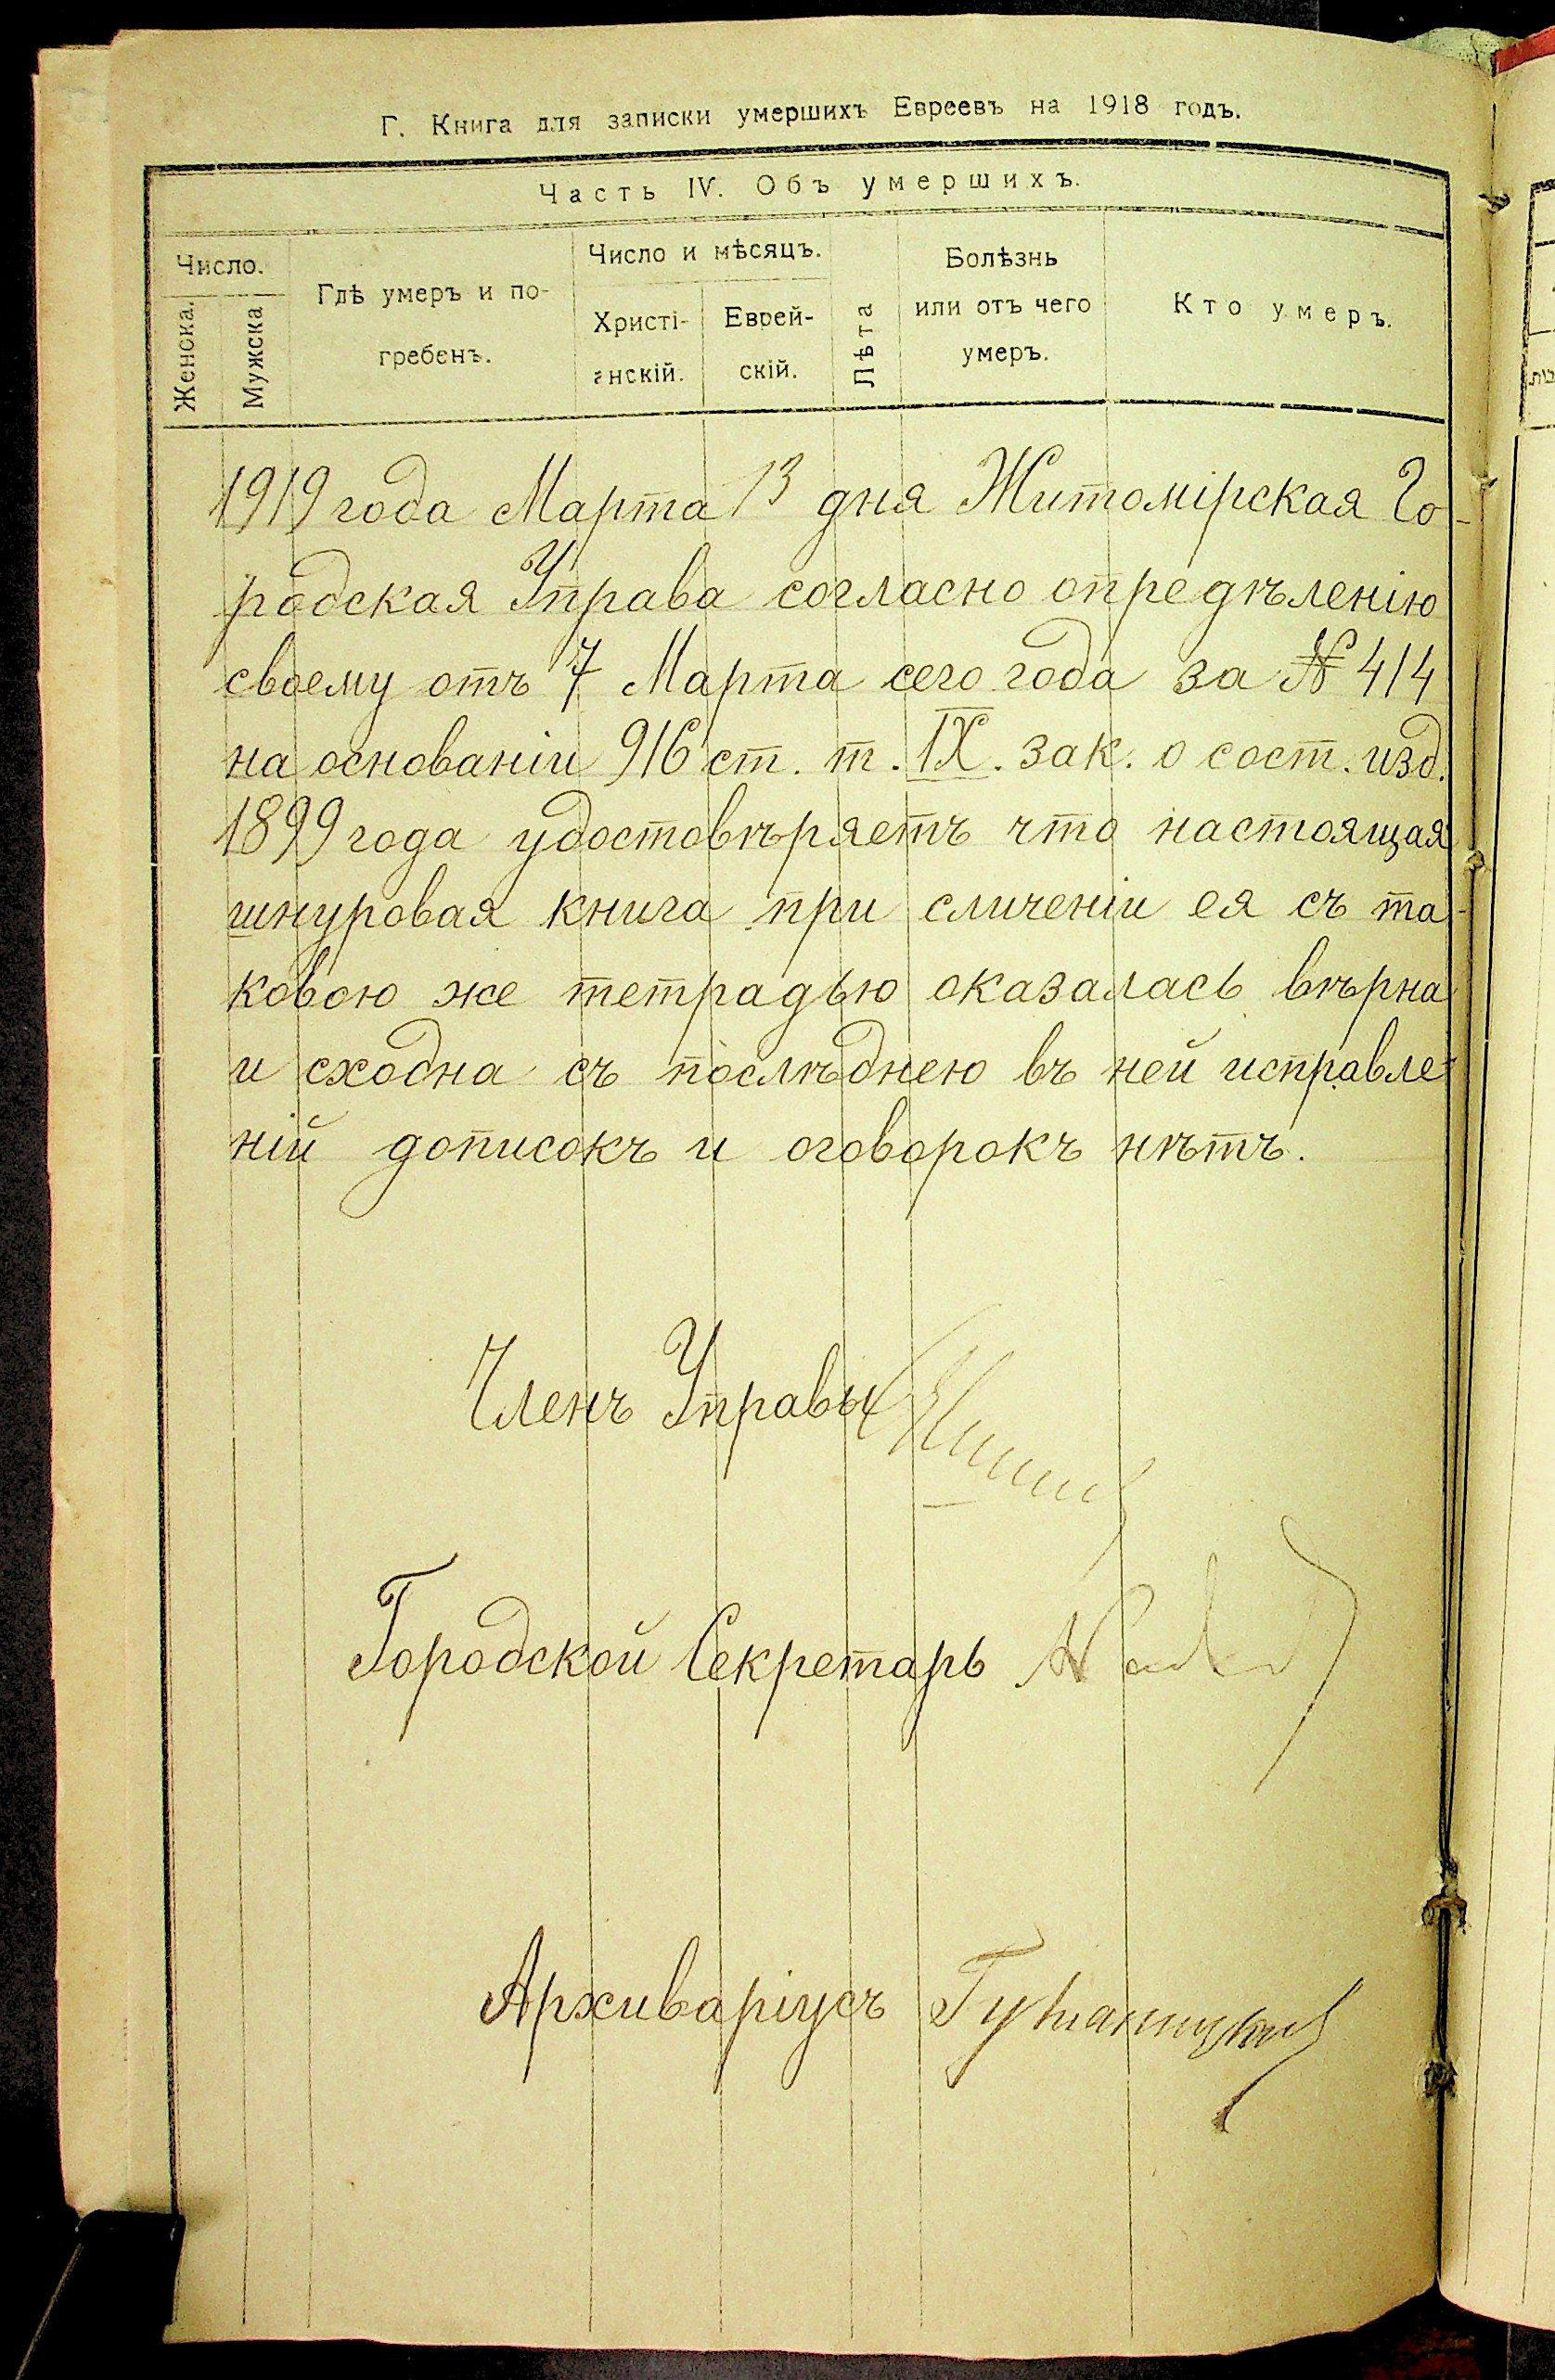 Г. Книга для записки умершихъ Евреевъ на 1918 годъ.
Часть IV. Объ умершихъ.
Число.
Женска.
Мужска
Гдѣ умеръ и по-
гребенъ.
Число и мѣсяцъ.
Христі-
анскій.
Еврей-
скій.
Лѣта
Болѣзнь
или отъ чего
умеръ.
Кто умеръ.
1919 года Марта 13 дня Житомірская Го-
родская Управа согласно опредѣленію
своему отъ 7 Марта сего года за № 414
на основаніи 916 ст. т. IX. зак. о сост. изд.
1899 года удостовѣряетъ что настоящая
шнуровая книга при сличеніи ея съ та-
ковою же тетрадью оказалась вѣрна
и сходна съ послѣднею въ ней исправле-
ній дописокъ и оговорокъ нѣтъ.
Членъ Управы
Городской Секретарь
Архиваріусъ